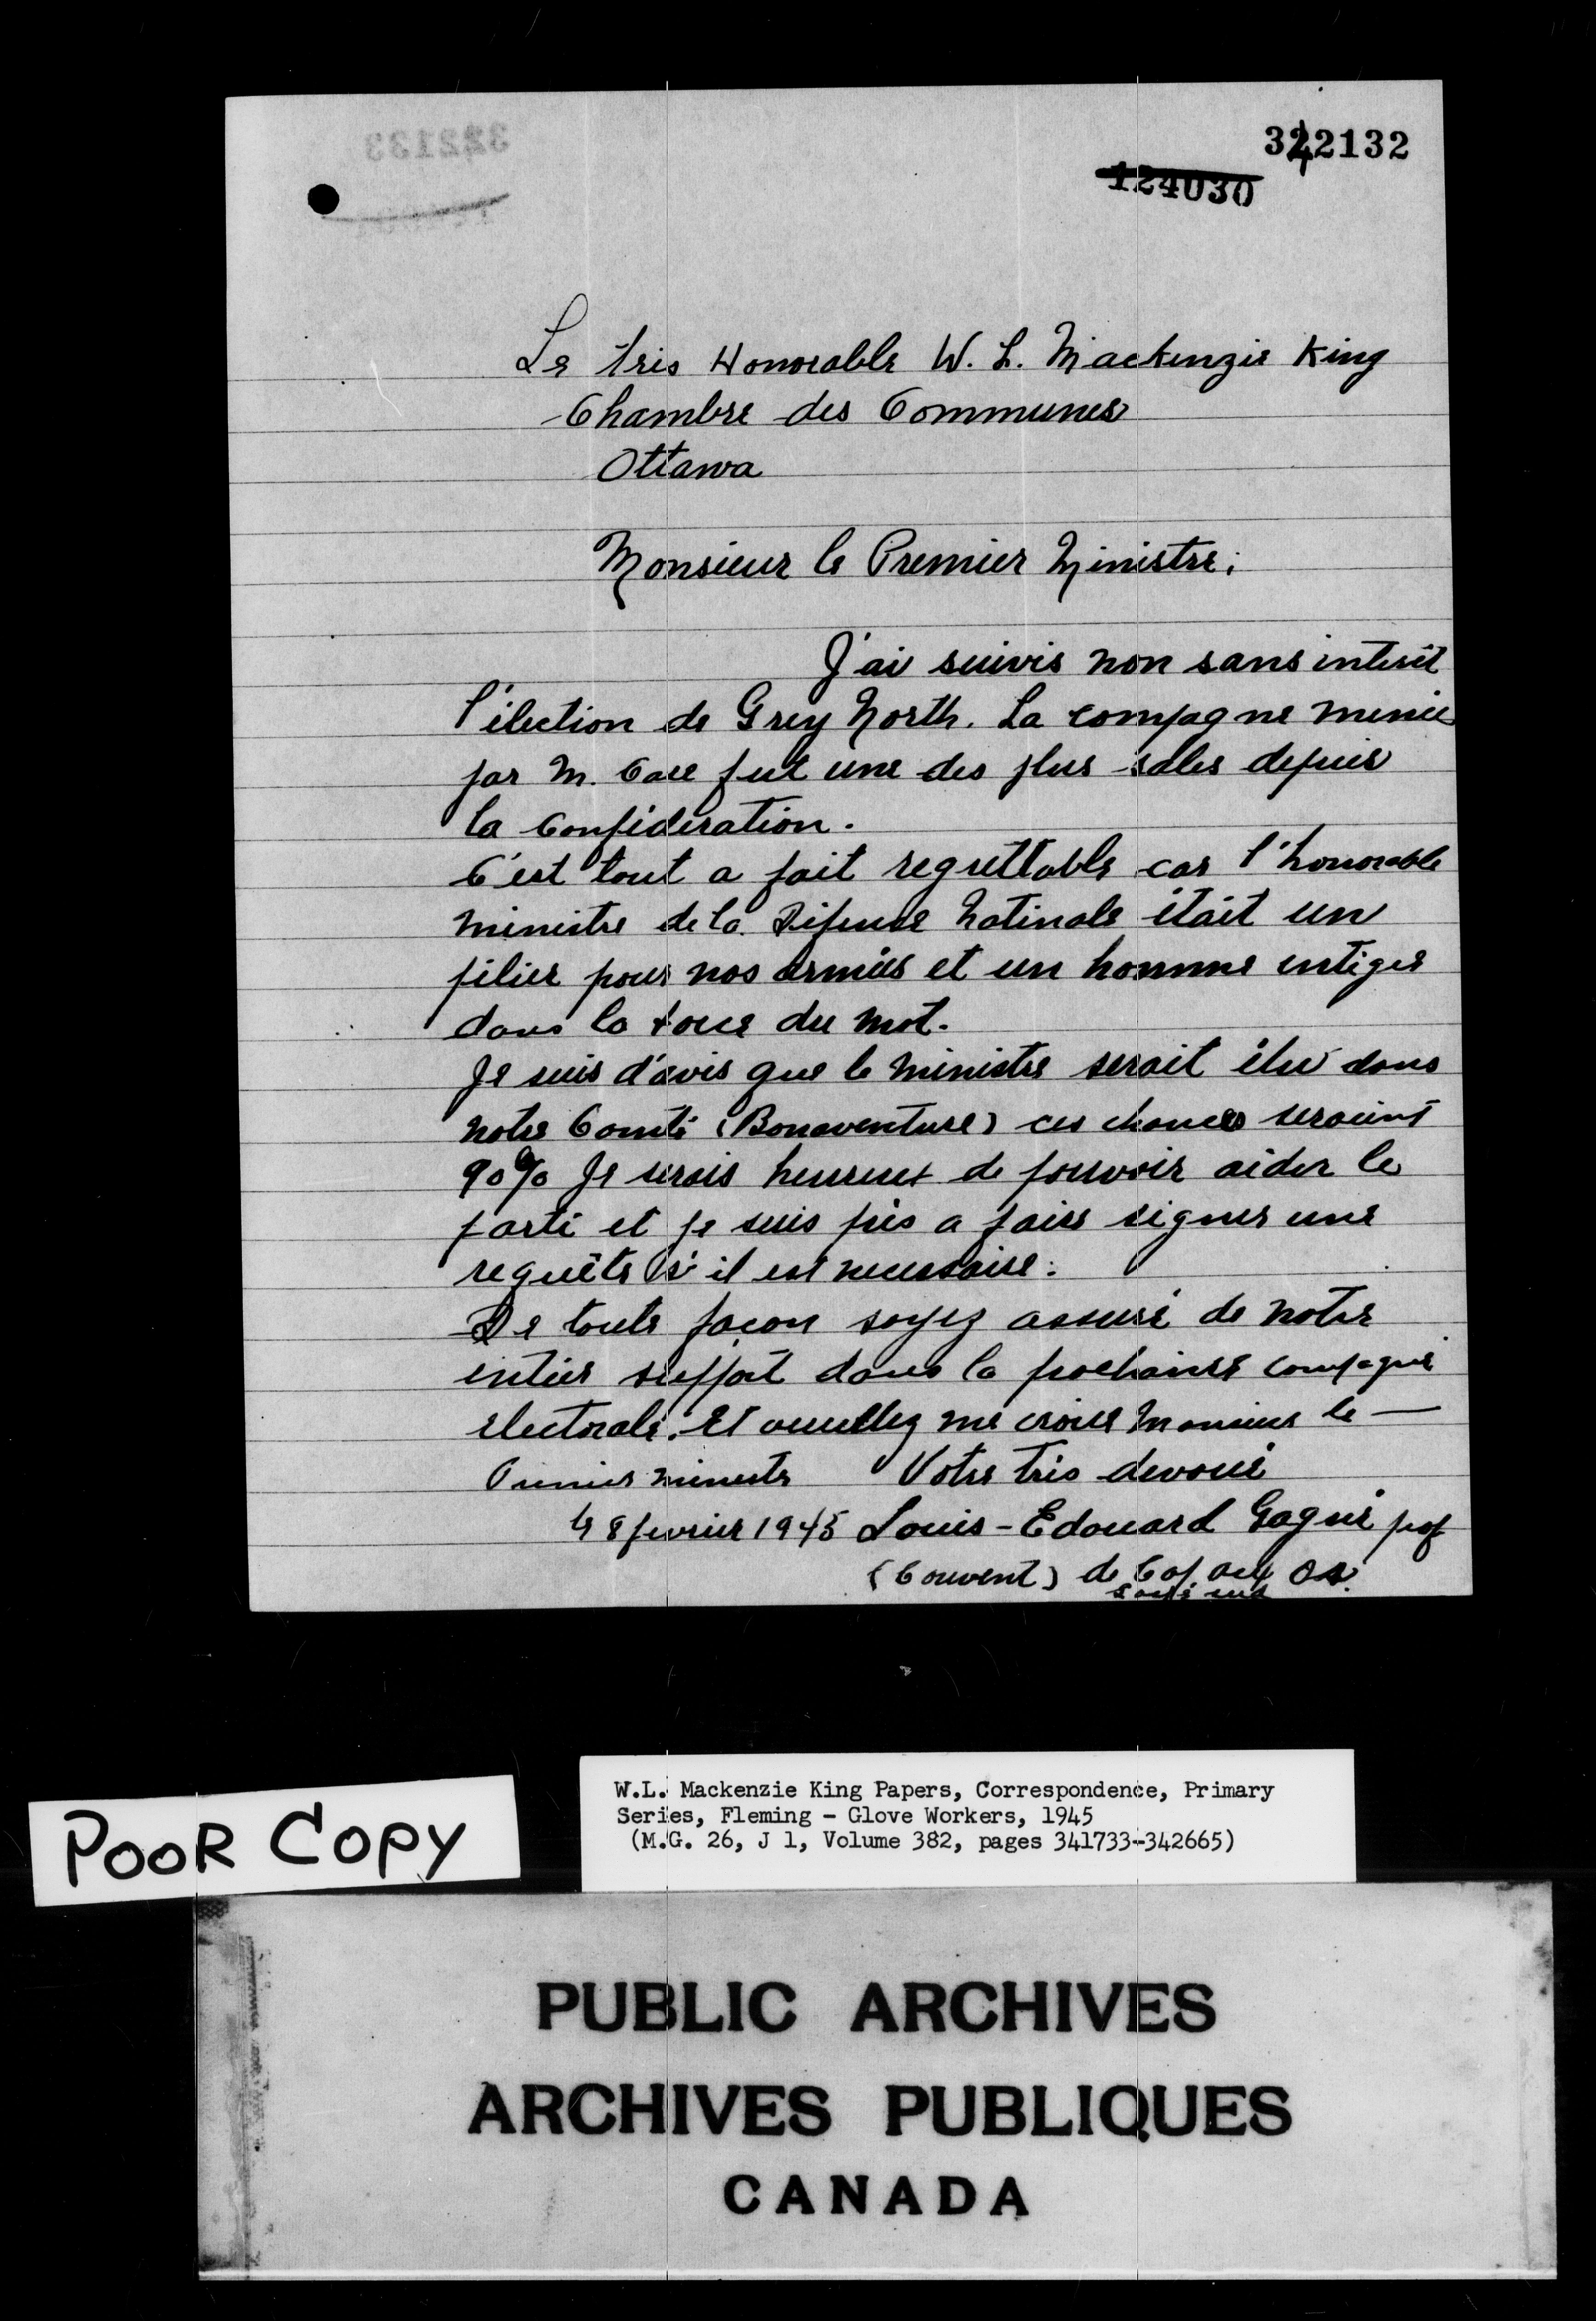 322133
342132
124030
Le très Honorable W. L. Mackenzie King
Chambre des Communes
Ottawa
Monsieur le Premier Ministre;
J'ai suivis non sans interêt
l'élection de Grey North. La campagne menée
par M. Case fut une des plus sales depuis
la Confédération.
C'est tout a fait regrettable car l'honorable
ministre de la Défense Natinale était un
pilier pour nos armées et un homme
dans la force du mot.
Je suis d'avis que le ministre serait élu dans
notre Comté (Bonaventure) ces chances seraient
90% Je serais heureux de pouvoir aider le
parti et je suis près a faire signer une
requête s'il est necessaire.
De toute facon soyez assuré de notre
entier support dans la prochaine campagne
electorale. Et veuillez me croire Monsieur le —
Premier ministre Votre très devoué
le 8 fevrier 1945 Louis-Edouard Gagné prof
(Couvent) de Cap aux Os
POOR COPY
W.L. Mackenzie King Papers, Correspondence, Primary
Series, Fleming - Glove Workers, 1945
(M.G. 26, J 1, Volume 382, pages 341733-342665)
PUBLIC ARCHIVES
ARCHIVES PUBLIQUES
CANADA